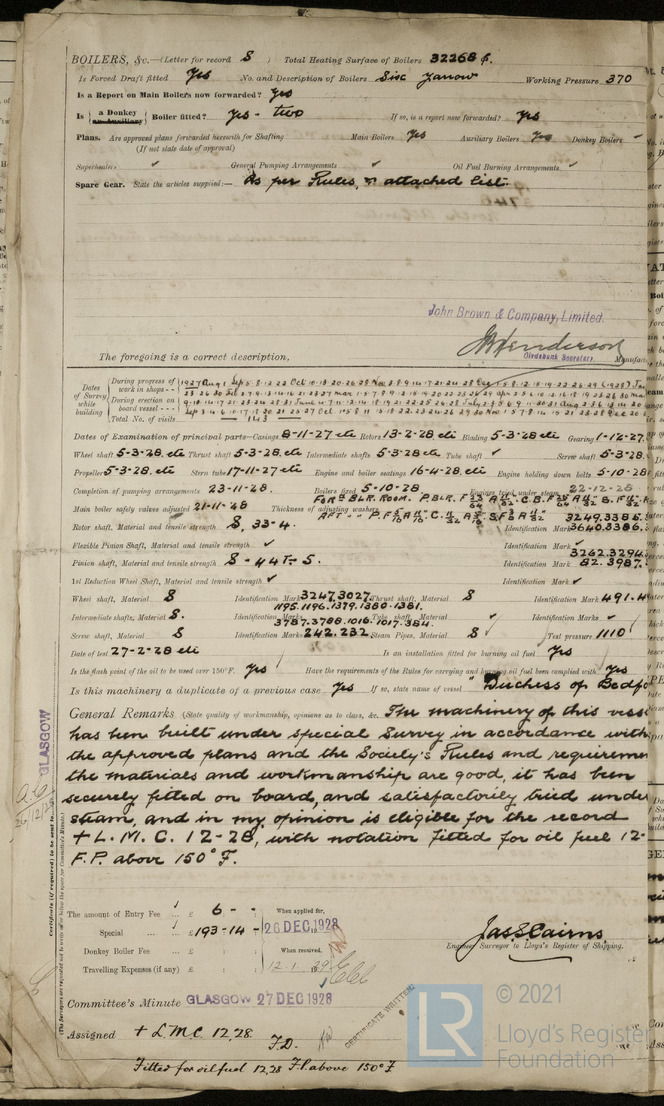 BOILERS, &c.—(Letter for record S ) Total Heating Surface of Boilers 32268 ϕ.
Is Forced Draft fitted Yes No. and Description of Boilers Six Yarrow Working Pressure 370
Is a Report on Main Boilers now forwarded? Yes
Is a Donkey an Auxiliary Boiler fitted? Yes - two If so, is a report now forwarded? Yes
Plans. Are approved plans forwarded herewith for Shafting Main Boilers Yes Auxiliary Boilers Yes Donkey Boilers ✓
(If not state date of approval)
Superheaters ✓ General Pumping Arrangements ✓ Oil Fuel Burning Arrangements ✓
Spare Gear. State the articles supplied:— As per Rules, & attached list.
John Brown & Company, Limited.
The foregoing is a correct description, Henderson
Clydebank Secretary. Manufac
Dates of Survey while building
During progress of work in shops - -
During erection on board vessel - - -
Total No. of visits 143
Dates of Examination of principal parts—Casings 8-11-27 etc Rotors 13-2-28 etc Blading 5-3-28 etc Gearing 1-12-27
Wheel shaft 5-3-28 etc Thrust shaft 5-3-28 etc Intermediate shafts 5-3-28 etc Tube shaft ✓ Screw shaft 5-3-28
Propeller 5-3-28 etc Stern tube 17-11-27 etc Engine and boiler seatings 16-4-28 etc Engine holding down bolts 5-10-28
Completion of pumping arrangements 23-11-28 Boilers fixed 5-10-28 Engines tried under steam 22-12-28
Main boiler safety valves adjusted 21-11-28 Thickness of adjusting washers
Rotor shaft, Material and tensile strength S, 33-4. Identification Mark 3249.3385. 3640.3386.
Flexible Pinion Shaft, Material and tensile strength ✓ Identification Mark ✓
Pinion shaft, Material and tensile strength S - 44 T- S. Identification Mark 3262.3294. 82.3987.
1st Reduction Wheel Shaft, Material and tensile strength ✓ Identification Mark ✓
Wheel shaft, Material S Identification Mark 3247.3027. Thrust shaft, Material S Identification Mark 491.4
1195.1196.1379.1380.1381.
Intermediate shafts, Material S. Identification Marks 3787.3788.1016.1017.384. Tube shaft, Material ✓ Identification Marks ✓
Screw shaft, Material S Identification Marks 242.232. Steam Pipes, Material S Test pressure 1110
Date of test 27-2-28 etc Is an installation fitted for burning oil fuel Yes
Is the flash point of the oil to be used over 150°F. Yes Have the requirements of the Rules for carrying and burning oil fuel been complied with Yes
Is this machinery a duplicate of a previous case Yes If so, state name of vessel "Duchess of Bedfo
General Remarks (State quality of workmanship, opinions as to class, &c. The machinery of this vess
has been built under special Survey in accordance with
the approved plans and the Society's Rules and requiremen
the materials and workmanship are good, it has been
securely fitted on board, and satisfactorily tried unde
steam, and in my opinion is eligible for the record
+ L. M. C. 12-28, with notation fitted for oil fuel 12-
F.P. above 150° F.
GLASGOW
Certificate (if required) to be sent to
(The Surveyors are requested not to write on or below the space for Committee's Minute.)
The amount of Entry Fee ... £ 6 - - When applied for,
Special ... £ 193-14- 26 DEC 1928
Donkey Boiler Fee ... £ : : When received,
Travelling Expenses (if any) £ : : 12.1.1929
Jas S Cairns
Engineer Surveyor to Lloyd's Register of Shipping.
Committee's Minute GLASGOW 27 DEC 1928
CERTIFICATE WRITTEN
Assigned + LMC 12,28.
F.D.
Fitted for oil fuel 12,28 F.P. above 150°F
LR © 2021
Lloyd's Register
Foundation